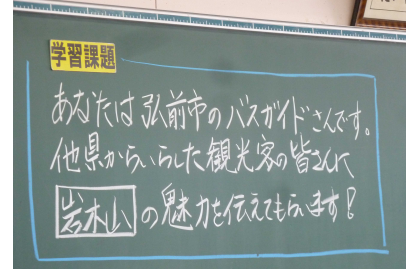 学習課題
あなたは弘前市のバスガイドさんです。
他県からいらした観光客の皆さんに
岩木山の魅力を伝えてもらいます!